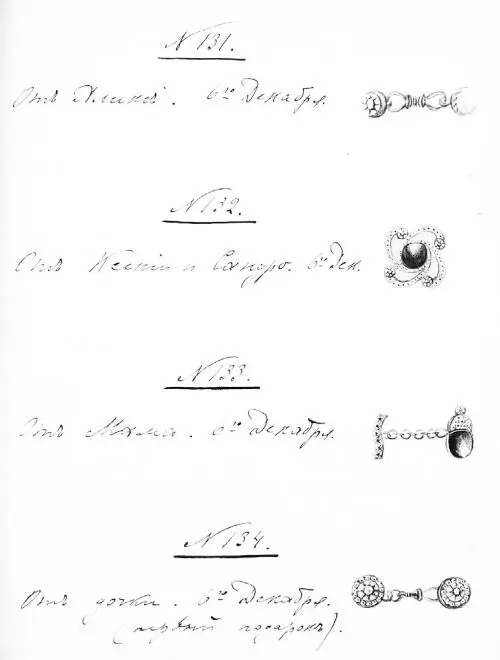 N 131.
Отъ Аликсъ. 6го Декабря.
N 132.
Отъ Ксеніи и Сандро. 6го Дек.
N 133.
Отъ Мама. 6го Декабря.
N 134.
Отъ дочки. 6го Декабря.
(первый подарокъ).